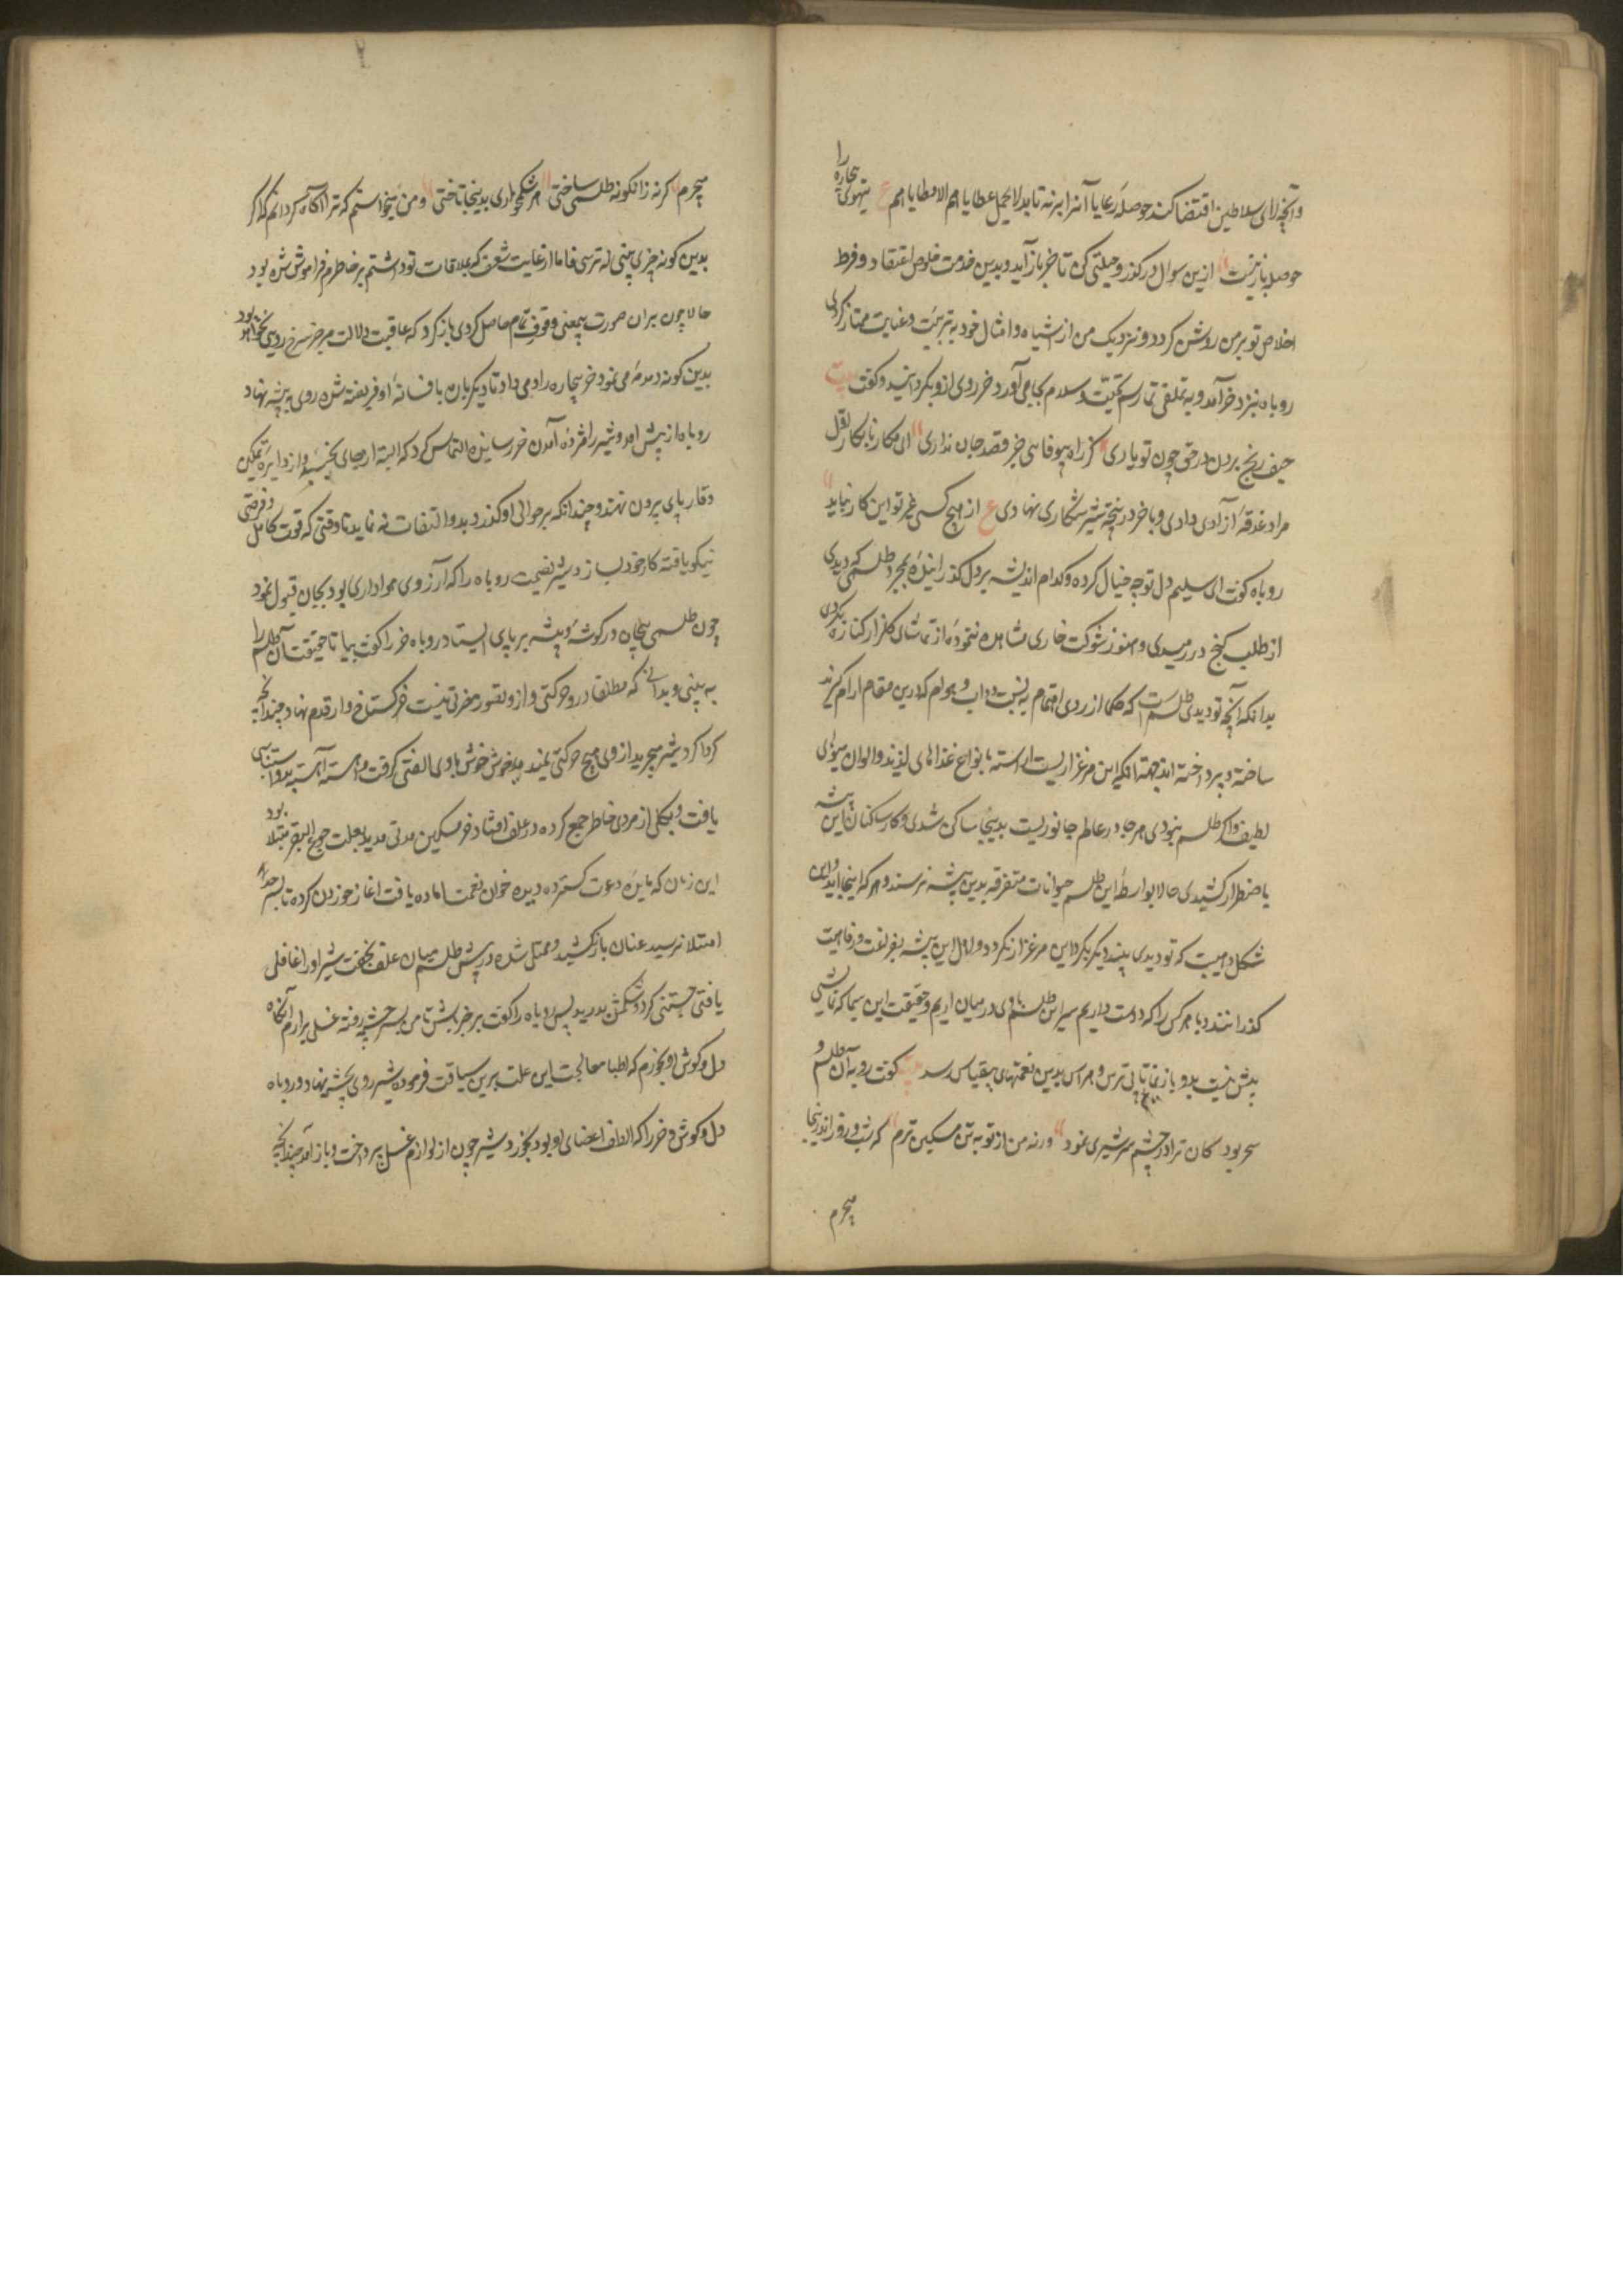 وآنچه رای سلاطین اقتضا کند حوصلهٔ رعایا آنرا برنه تابد لا یحمل عطایاهم الا مطایاهم ع تیهوی بیچاره را
حوصله باز نیست ازین سوال درگذر و حیلتی کن تا خر باز آید و بدین خدمت خلوص اعتقاد و فرط
اخلاص تو بر من روشن گردد و نزدیک من از اشباه و امثال خود به تربیت و عنایت ممتاز گردی
روباه نزد خر آمد و به تملقی تمام رسم تحیت و سلام بجای می آورد خر روی ازو بگردانید و گفت بیت
حیف رنج بردن در حق چون تو یاری کز راه بیوفایی جز قصد جان نداری ای مکار نابکار اول
مرا وعدهٔ آزادی دادی و باخر در پنجهٔ شیر شکاری نهادی ع از هیچ کسی غیر تو این کار نیاید
روباه گفت ای سلیم دل تو چه خیال کرده و کدام اندیشه بر دل گذرانیدهٔ بمجرد طلسمی که دیدی
از طلب گنج در رمیدی و هنوز شوکت خاری مشاهده ننموده از تماشای گلزار کناره کردی
بدانکه آنچه تو دیدی طلسمیست که حکما از روی اهتمام به نسبت دواب و هوام که درین مقام آرام گیرند
ساخته و پرداخته اند جهت آنکه این مرغزاریست آراسته بانواع غذاهای لذیذ و الوان میوهای
لطیف و اگر طلسم نبودی هر جا در عالم جانوریست بدینجا ساکن شدی و کار ساکنان این بیشه
باضطرار کشیدی حالا بواسطهٔ این طلسم حیوانات متفرقه بدین بیشه نرسند و هر که اینجا آید و این
شکل و هیبت که تو دیدی بیند دیگر گرد این مرغزار نگردد و اهل این بیشه بفراغت و رفاهیت
گذرانند و با هر کس را که دوست داریم سر این طلسم باوی در میان آریم و حقیقت این سیما که نمایشی
بیش نیست بدو باز نماییم تا بی ترس و هراس بدین نعمتهای بیقیاس رسد بیت گفت روبه آن طلسم و
سحر بود کان ترا در چشم سر شیری نمود ورنه من از تو به تن مسکین ترم که شب و روز اندرینجا
میچرم
میچرم گرنه زانگونه طلسمی ساختی هر شکمخواری بدینجا تاختی و من میخواستم که ترا آگاه گردانم که اگر
بدین گونه چیزی بینی نه ترسی فاما از غایت شعف که بملاقات تو داشتم بر خاطرم فراموش شده بود
حالا چون بران صورت بیمعنی وقوف تمام حاصل کردی باز گرد که عاقبت دلالت من جز سرخ رویی نخواهد بود
بدین گونه دمدمه می نمود و خر بیچاره را دم می داد تا دیگر بار بافسانهٔ او فریفته شده روی به بیشه نهاد
روباه از پیش آمد و شیر را مژدهٔ آمدن خر رسانیده التماس کرد که البته از جای نجنبد و از دایرهٔ تمکین
و وقار پای بیرون ننهد و چندانکه بر حوالی او گذرد بدو التفات نه نماید تا وقتی که قوت کامل و فرصتی
نیکو یافته کار خود بسازد شیر نصیحت روباه را که از روی هواداری بود بجان قبول نمود
چون طلسمی بیجان در گوشهٔ بیشه بر پای ایستاد روباه خر را گفت بیا تا حقیقت آن طلسم را
به بینی و بدانی که مطلقا درو حرکتی و ازو تصور مضرتی نیست خر گستاخ وار قدم نهاد چندانکه
گرداگرد شیر میچرید از وی هیچ حرکتی ندید خوش خوش باوی الفتی گرفت و آهسته آهسته بدو استیناسی
یافت و بکلی از مردی خاطر جمع کرده در علف افتاد خر مسکین مدتی مدید بعلت جوع البقر مبتلا بود
این زمان که مایدهٔ دعوت گسترده دیده خوان نعمت آماده یافت آغاز خوردن کرده تا بسر حد
امتلا نرسید عنان باز نکشید و ممتلی شده در پیش طلسم میان علف بخفت شیر او را غافلی
یافتی جستنی کرد و شکمش بدرید پس روباه را گفت بر خبر باش تا من به سر چشمه رفته غسلی برآرم آنگاه
دل و گوش او بخورم که اطبا معالجت این علت برین سیاقت فرموده شیر روی بچشمه نهاد و روباه
دل و گوش خر را که الطف اعضای او بود بخورد شیر چون از لوازم غسل پرداخت و باز آمد چندانکه